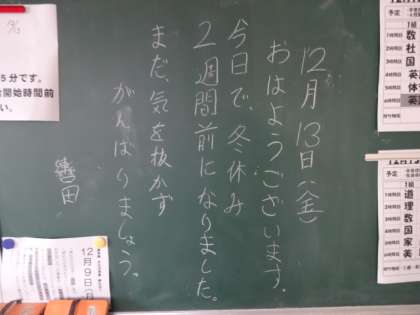 12月13日(金)
おはようございます。
今日で、冬休み
2週間前になりました。
まだ、気を抜かず
がんばりましょう。
5分です。
開始時間前
い。
12月9日(月
予定
1組
1時間目 数
2時間目 社
3時間目 国
4時間目 英
5時間目 体
6時間目 英
予定
1組
1時間目 道
2時間目 理
3時間目 数
4時間目 国
5時間目 家
6時間目 英